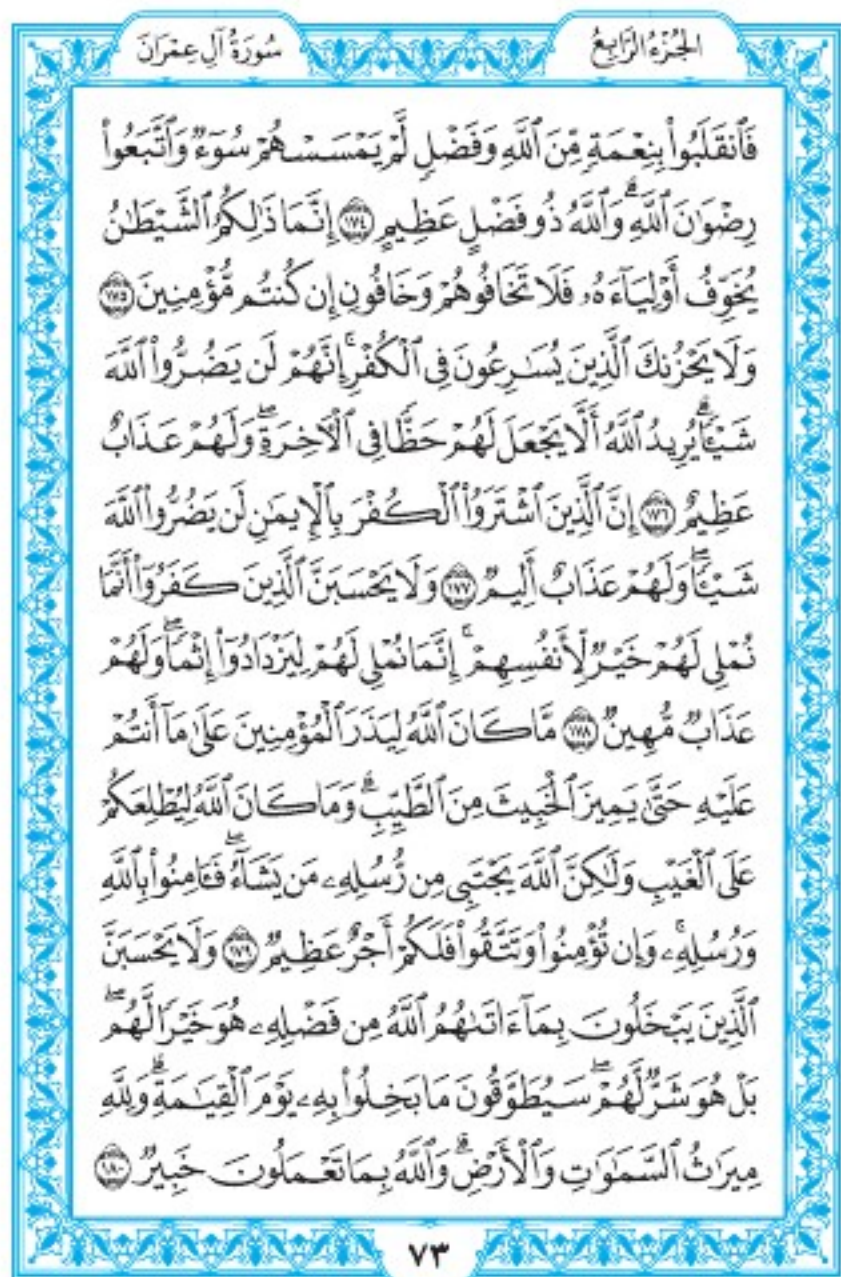 الجُزْءُ الرَّابِعُ
سُورَةُ آلِ عِمْرَانَ
فَٱنقَلَبُواْ بِنِعْمَةٍ مِّنَ ٱللَّهِ وَفَضْلٍ لَّمْ يَمْسَسْهُمْ سُوٓءٌ وَٱتَّبَعُواْ
رِضْوَٰنَ ٱللَّهِۗ وَٱللَّهُ ذُو فَضْلٍ عَظِيمٍ ١٧٤ إِنَّمَا ذَٰلِكُمُ ٱلشَّيْطَٰنُ
يُخَوِّفُ أَوْلِيَآءَهُۥ فَلَا تَخَافُوهُمْ وَخَافُونِ إِن كُنتُم مُّؤْمِنِينَ ١٧٥
وَلَا يَحْزُنكَ ٱلَّذِينَ يُسَٰرِعُونَ فِى ٱلْكُفْرِۚ إِنَّهُمْ لَن يَضُرُّواْ ٱللَّهَ
شَيْـًٔاۗ يُرِيدُ ٱللَّهُ أَلَّا يَجْعَلَ لَهُمْ حَظًّا فِى ٱلْءَاخِرَةِۖ وَلَهُمْ عَذَابٌ
عَظِيمٌ ١٧٦ إِنَّ ٱلَّذِينَ ٱشْتَرَوُاْ ٱلْكُفْرَ بِٱلْإِيمَٰنِ لَن يَضُرُّواْ ٱللَّهَ
شَيْـًٔاۖ وَلَهُمْ عَذَابٌ أَلِيمٌ ١٧٧ وَلَا يَحْسَبَنَّ ٱلَّذِينَ كَفَرُوٓاْ أَنَّمَا
نُمْلِى لَهُمْ خَيْرٌ لِّأَنفُسِهِمْۚ إِنَّمَا نُمْلِى لَهُمْ لِيَزْدَادُوٓاْ إِثْمًاۖ وَلَهُمْ
عَذَابٌ مُّهِينٌ ١٧٨ مَّا كَانَ ٱللَّهُ لِيَذَرَ ٱلْمُؤْمِنِينَ عَلَىٰ مَآ أَنتُمْ
عَلَيْهِ حَتَّىٰ يَمِيزَ ٱلْخَبِيثَ مِنَ ٱلطَّيِّبِۗ وَمَا كَانَ ٱللَّهُ لِيُطْلِعَكُمْ
عَلَى ٱلْغَيْبِ وَلَٰكِنَّ ٱللَّهَ يَجْتَبِى مِن رُّسُلِهِۦ مَن يَشَآءُۖ فَـَٔامِنُواْ بِٱللَّهِ
وَرُسُلِهِۦۚ وَإِن تُؤْمِنُواْ وَتَتَّقُواْ فَلَكُمْ أَجْرٌ عَظِيمٌ ١٧٩ وَلَا يَحْسَبَنَّ
ٱلَّذِينَ يَبْخَلُونَ بِمَآ ءَاتَىٰهُمُ ٱللَّهُ مِن فَضْلِهِۦ هُوَ خَيْرًا لَّهُمۖ
بَلْ هُوَ شَرٌّ لَّهُمْۖ سَيُطَوَّقُونَ مَا بَخِلُواْ بِهِۦ يَوْمَ ٱلْقِيَٰمَةِۗ وَلِلَّهِ
مِيرَٰثُ ٱلسَّمَٰوَٰتِ وَٱلْأَرْضِۗ وَٱللَّهُ بِمَا تَعْمَلُونَ خَبِيرٌ ١٨٠
٧٣